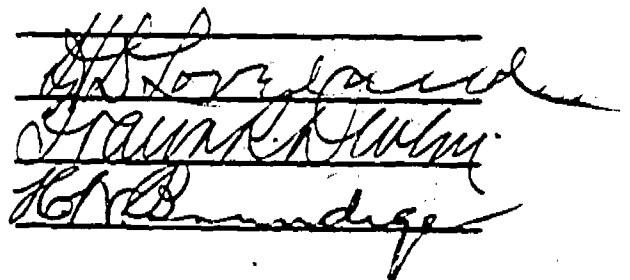 H D Loveland
Frank R. Devlin.
H. N. Brundige